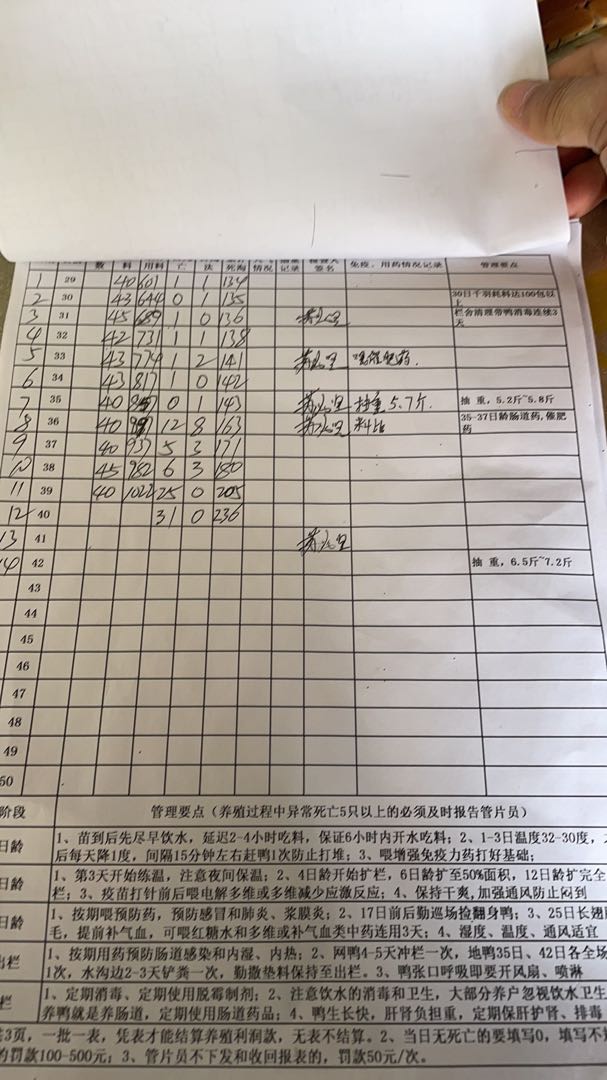 数 料 用料 亡 法 死淘 情况 记录 签名 免疫、用药情况记录 管理要点
1 29 40 601 1 1 134
2 30 43 644 0 1 135 30日千羽耗料达100包以上
3 31 45 689 1 0 136 栏舍清理带鸭消毒连续3天
4 32 42 731 1 1 138
5 33 43 774 1 2 141
6 34 43 817 1 0 142
7 35 40 0 1 143 抽重5.7斤. 抽 重，5.2斤~5.8斤
8 36 40 12 8 163 料比 35-37日龄肠道药,催肥药
9 37 40 937 5 3 171
10 38 45 982 6 3 180
11 39 40 1022 25 0 205
12 40 31 0 236
13 41
14 42 抽 重，6.5斤~7.2斤
43
44
45
46
47
48
49
50
阶段 管理要点（养殖过程中异常死亡5只以上的必须及时报告管片员）
日龄 1、苗到后先尽早饮水，延迟2-4小时吃料，保证6小时内开水吃料；2、1-3日温度32-30度，
后每天降1度，间隔15分钟左右赶鸭1次防止打堆；3、喂增强免疫力药打好基础；
日龄 1、第3天开始练温，注意夜间保温；2、4日龄开始扩栏，6日龄扩至50%面积，12日龄扩完全
栏；3、疫苗打针前后喂电解多维或多维减少应激反应；4、保持干爽,加强通风防止闷到
日龄 1、按期喂预防药，预防感冒和肺炎、浆膜炎；2、17日前后勤巡场捡翻身鸭；3、25日长翅
毛，提前补气血，可喂红糖水和多维或补气血类中药连用3天；4、湿度、温度、通风适宜
出栏 1、按期用药预防肠道感染和内湿、内热；2、网鸭4-5天冲栏一次，地鸭35日、42日各全场
1次，水沟边2-3天铲粪一次，勤撒垫料保持至出栏。3、鸭张口呼吸即要开风扇、喷淋
栏 1、定期消毒、定期使用脱霉制剂；2、注意饮水的消毒和卫生，大部分养户忽视饮水卫生
养鸭就是养肠道，定期使用肠道药品；4、鸭生长快，肝肾负担重，定期保肝护肾、排毒
共3页，一批一表，凭表才能结算养殖利润款，无表不结算。2、当日无死亡的要填写0，填写不
的罚款100-500元；3、管片员不下发和收回报表的，罚款50元/次。